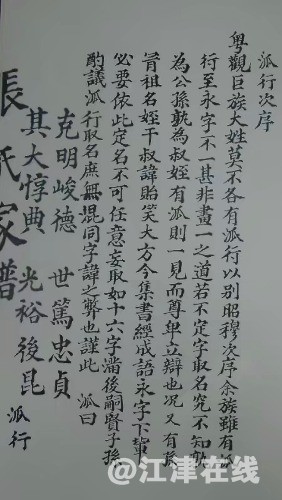 派行次序
粤觀巨族大姓莫不各有派行以别昭穆次序余族雖有派
行至永字不一甚非畫一之道若不定字取名究不知孰
為公孫孰為叔姪有派則一見而尊卑立辯也况又有
背祖名姪干叔諱貽笑大方今集書經成語永字下輩
必要依此定名不可任意妄取如十六字滿後嗣賢子孫
酌議派行取名庶無混同字諱之弊也謹此 派曰
克明峻德 世篤忠貞
其大惇典 光裕後昆 派行
張氏家譜
@江津在线